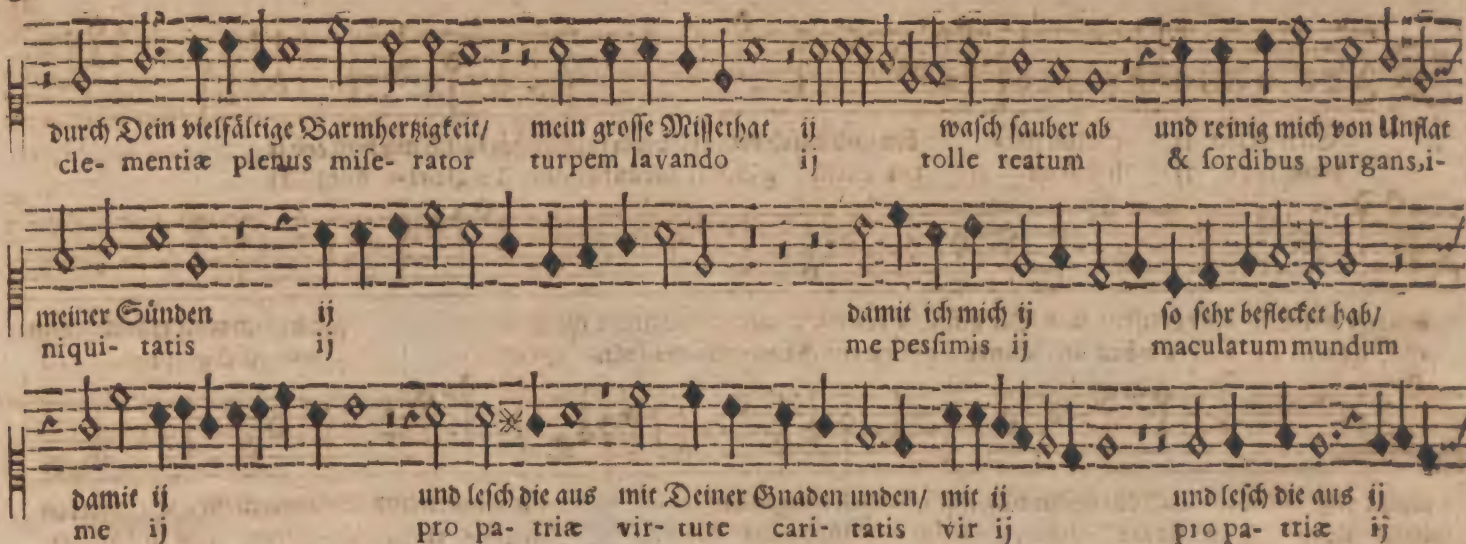 durch Dein vielfältige Barmhertzigkeit/ mein grosse Missethat ij wasch sauber ab und reinig mich von Unflat
cle- mentiæ plenus mise- rator turpem lavando ij tolle reatum & sordibus purgans, i-
meiner Sünden ij damit ich mich ij so sehr beflecket hab/
niqui- tatis ij me pessimis ij maculatum mundum
damit ij und lesch die aus mit Deiner Gnaden unden/ mit ij und lesch die aus ij
me ij pro pa- triæ vir- tute cari- tatis vir ij pro pa- triæ ij